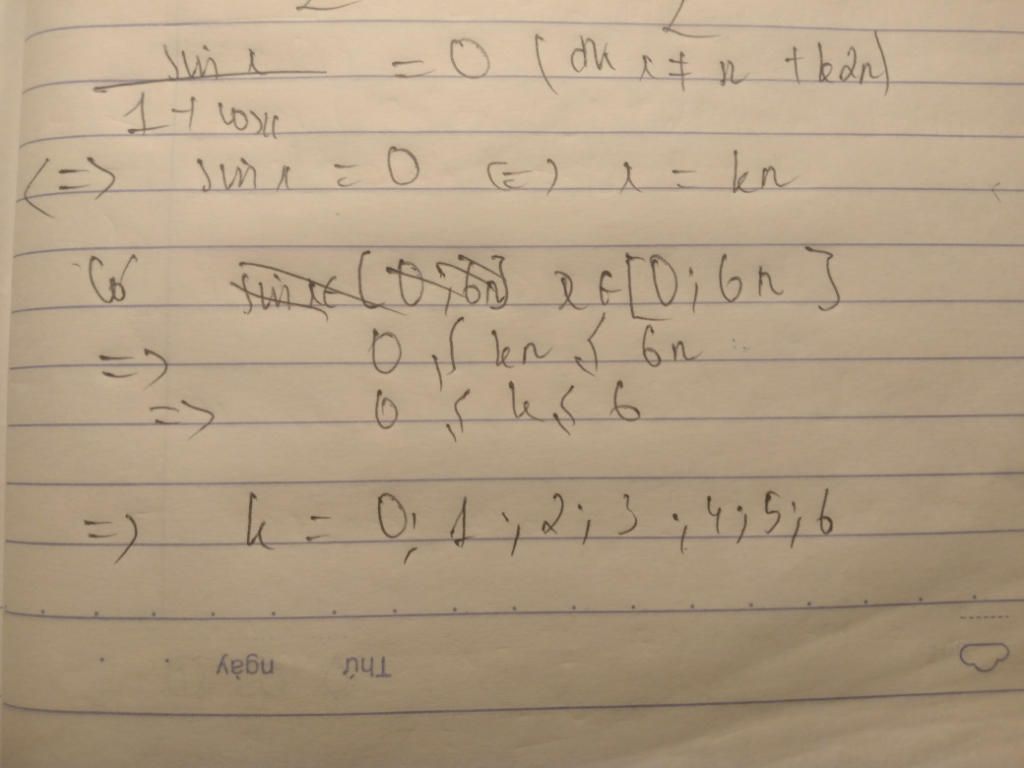 sin x / 1 + cosx = 0 (đk x ≠ π + k2π)
(=) sin x = 0 (=) x = kπ
Có x ∈ [0; 6π]
=> 0 ≤ kπ ≤ 6π
=> 0 ≤ k ≤ 6
=> k = 0; 1; 2; 3; 4; 5; 6
Thứ ngày